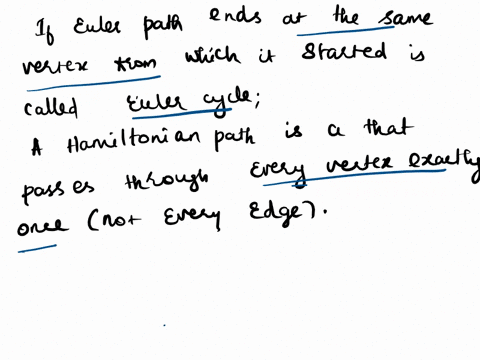 If Euler path ends at the same
vertex from which it started is
called Euler cycle;
A Hamiltonian path is a that
passes through Every vertex exactly
once (not Every Edge).